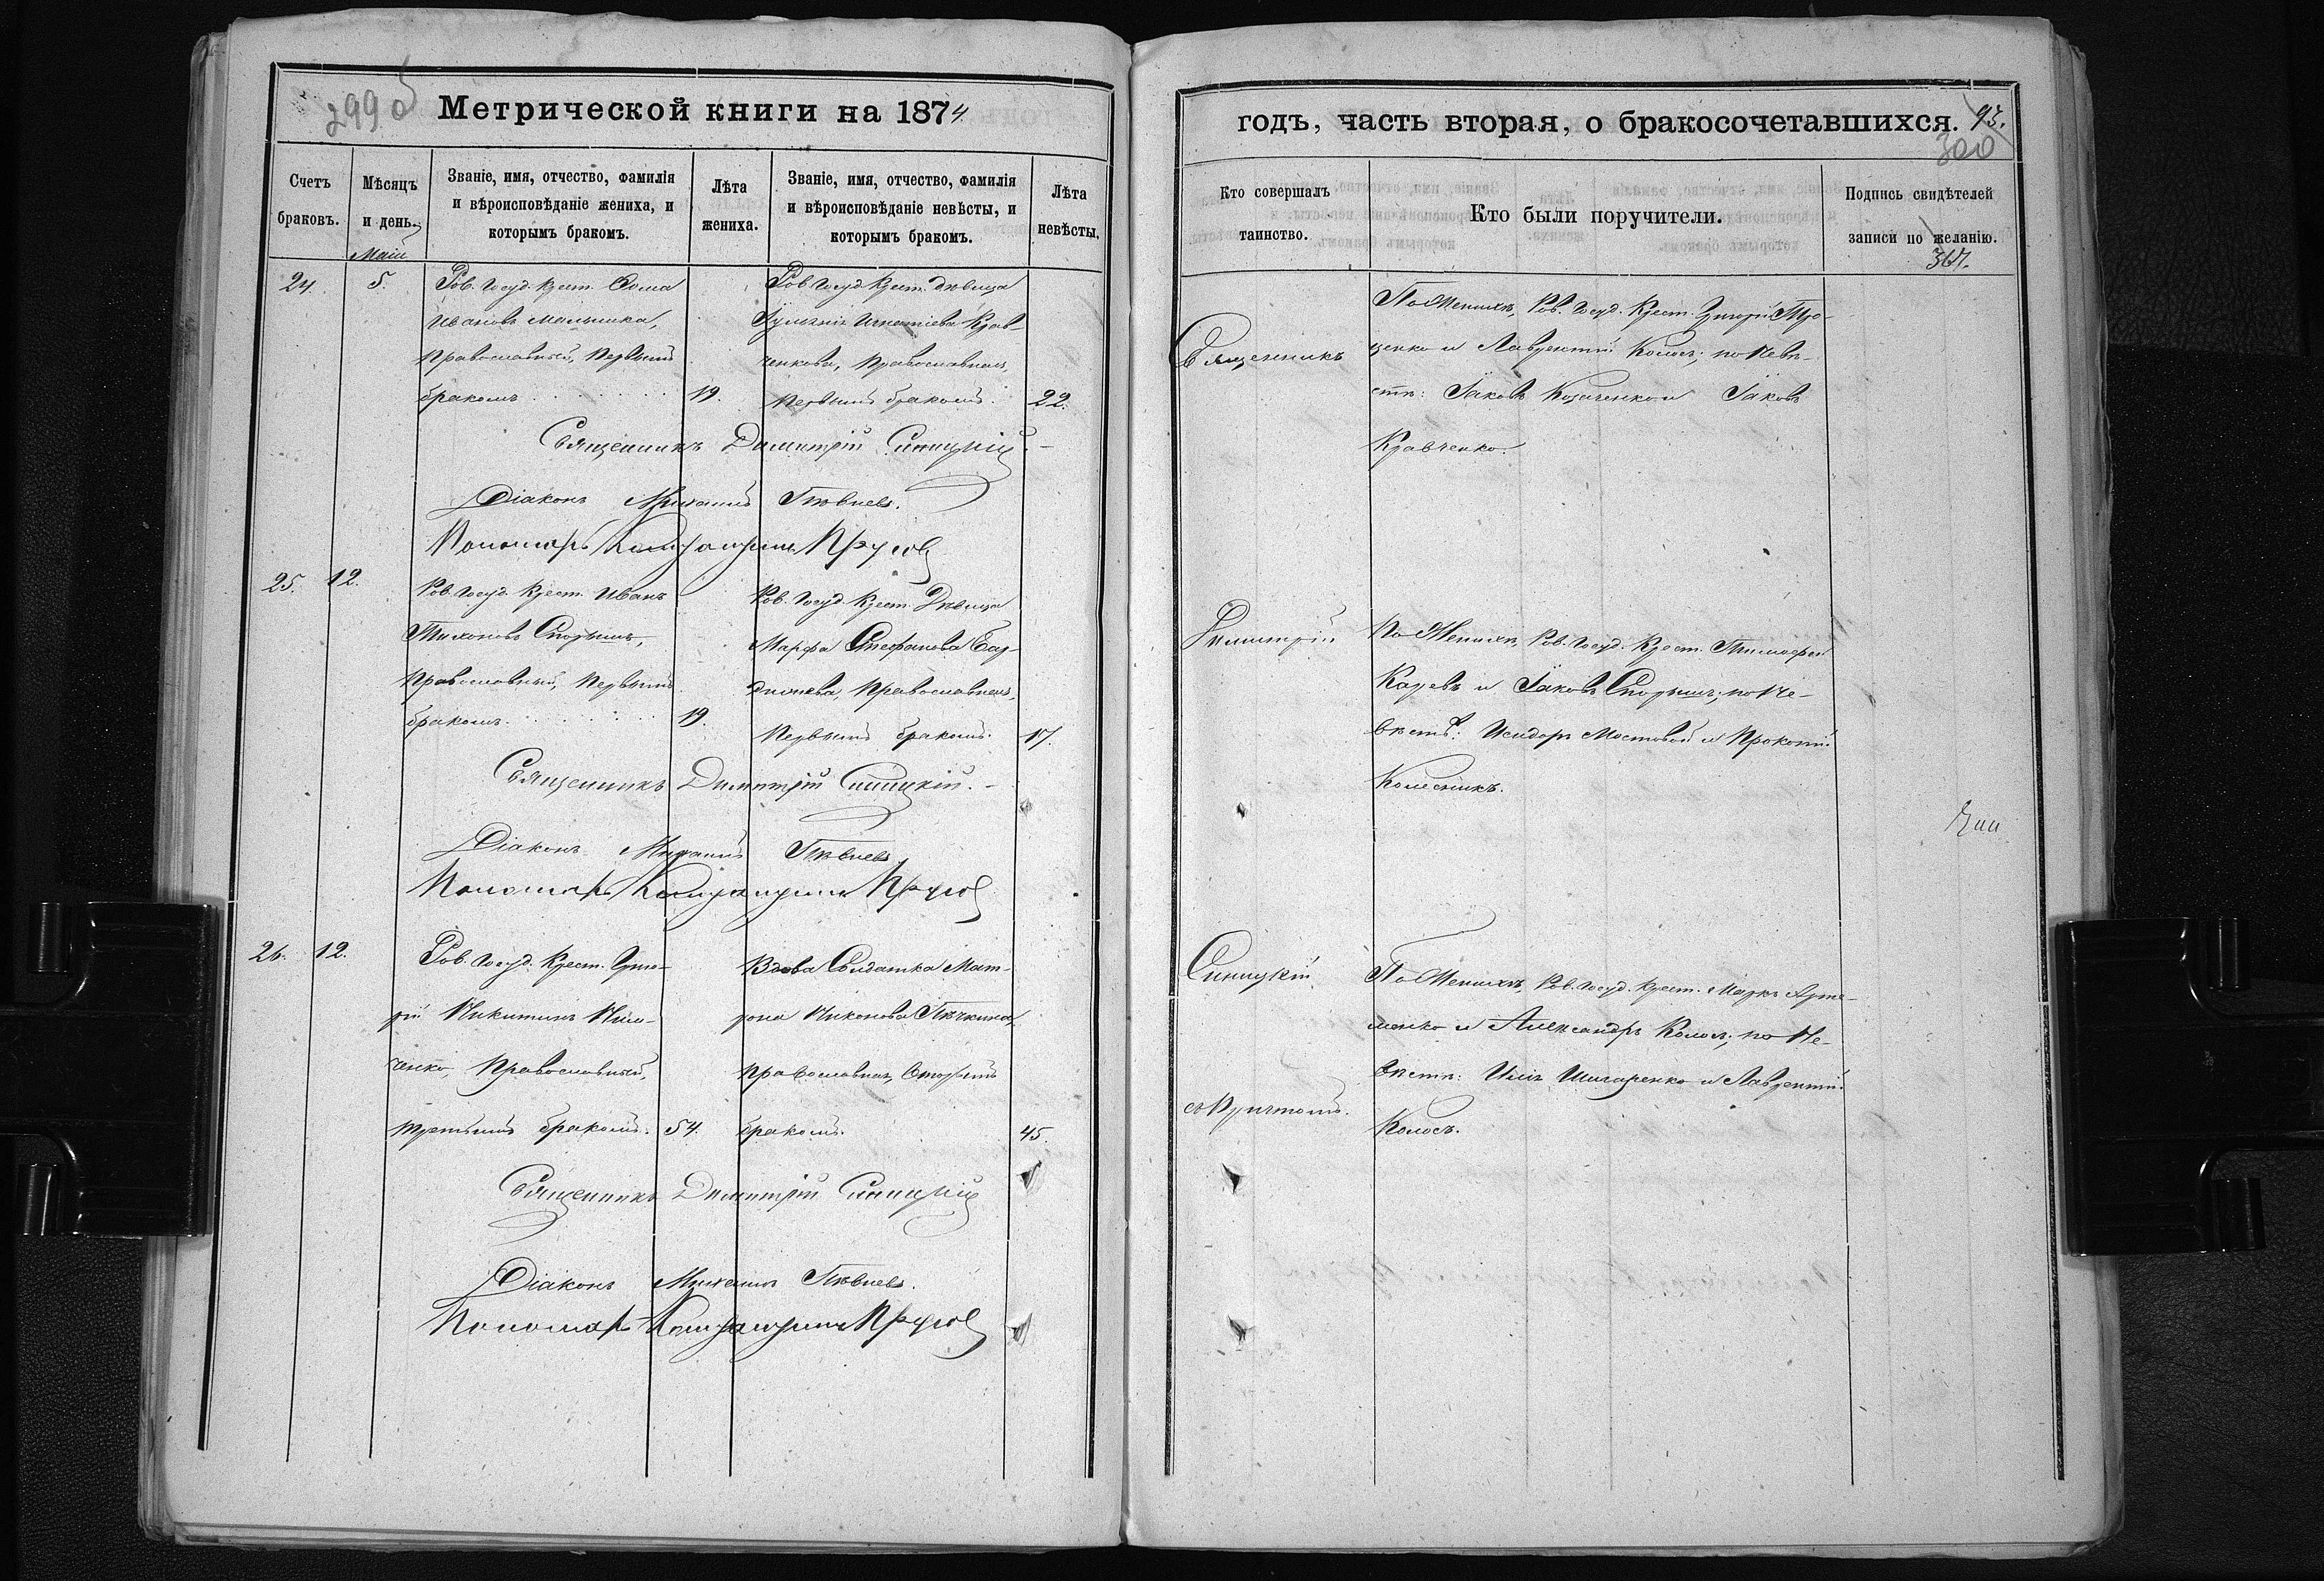 299 об
Метрической книги на 1874
Счетъ браковъ.
Мѣсяцъ и день.
Званіе, имя, отчество, фамилія и вѣроисповѣданіе жениха, и которымъ бракомъ.
Лѣта жениха.
Званіе, имя, отчество, фамилія и вѣроисповѣданіе невѣсты, и которымъ бракомъ.
Лѣта невѣсты.
Маій
24.
5.
Ров. Госуд. Крест. Ѳома
Ивановъ Мельника,
Православный, Первымъ
бракомъ
19.
Ров. Госуд. Крест. Дѣвица
Іуліанія Игнатіева Крав-
ченкова, Православная,
Первымъ бракомъ.
22.
Священникъ Димитрій Синицкій
Діаконъ Михаилъ Пѣвневъ.
Пономарь
25.
12.
Ров. Госуд. Крест. Иванъ
Тихоновъ Споришъ,
Православный, Первымъ
бракомъ
19.
Ров. Госуд. Крест. Дѣвица
Марфа Стефанова
Православная,
Первымъ бракомъ.
17.
Священникъ Димитрій Синицкій.
Діаконъ Михаилъ Пѣвневъ
Пономарь
26.
12.
Ров. Госуд. Крест. Григо-
рій Никитинъ
Православный,
третьимъ бракомъ.
54.
Вдова Солдатка Мат-
рона Никонова Пѣчкина,
Православная, Вторымъ
бракомъ.
45.
Священникъ Димитрій Синицкій
Діаконъ Михаилъ Пѣвневъ.
Пономарь
годъ, часть вторая, о бракосочетавшихся.
93.
300
Кто совершалъ таинство.
Кто были поручители.
Подпись свидѣтелей записи по желанію.
367.
Священникъ
Димитрій
Синицкій
съ Причтомъ.
По Женихѣ, Ров. Госуд. Крест. Григорій Тро-
ценко и Лаврентій Колосъ; по Невѣ-
стѣ: Іаковъ Козаченко и Іаковъ
Кравченко.
По Женихѣ, Ров. Госуд. Крест. Тимофей
Каревъ и Іаковъ Споришъ; по Не-
вѣстѣ: Исидоръ Мостовой и Прокопій
Колесникъ.
По Женихѣ, Ров. Госуд. Крест. Маркъ Арте-
менко и Александръ Колосъ; по Не-
вѣстѣ: Илія Шинаренко и Лаврентій
Колосъ.